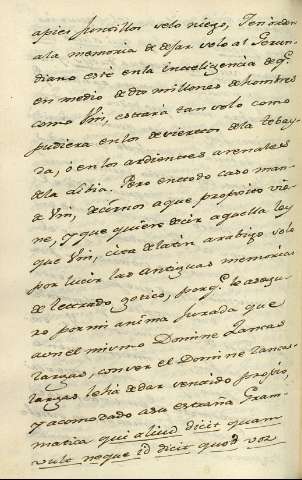 apices sencillos velo niego, Ten orden
a la memoria de dejar solo al Gerun-
diano esté en la inteligencia de q.e
en medio de dos millones de hombres
como Vm, estará tan solo como
pudiera en los desiertos de la tebay-
da, ó en los ardientes arenales
de la Libia. Pero en todo caso man-
de Vm, decirnos a que proposito vie-
ne, y que quiere decir aquella ley
que Vm, cita de latin arabigo solo
por lucir las antiguas memorias
de letrado gotico, porq.e le asegu-
ro por mi anima jurada que
aun el mismo Domine Zancas
largas, con ser el Domine Zancas-
largas lo ha de dar sentido propio,
y acomodado a su estraña Gram-
matica qui aliud dicit quam
vult neque id dicit quod vox